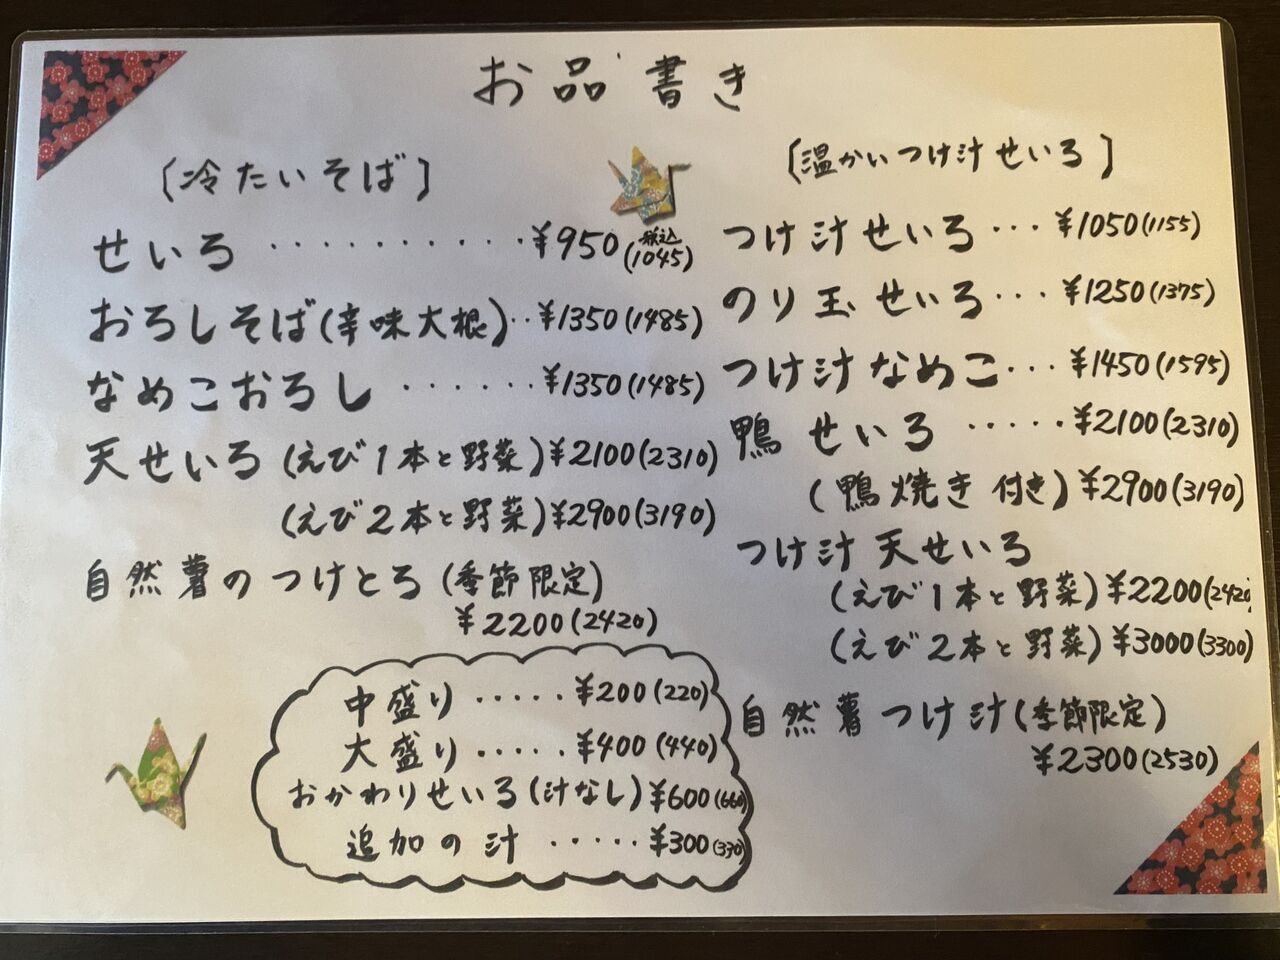 お品書き
〔冷たいそば〕
せいろ ・・・・・・・・・・ ¥950(税込1045)
おろしそば(辛味大根)・・¥1350(1485)
なめこおろし ・・・・・・¥1350(1485)
天せいろ(えび1本と野菜)¥2100(2310)
(えび2本と野菜)¥2900(3190)
自然薯のつけとろ(季節限定)
¥2200(2420)
中盛り・・・・・¥200(220)
大盛り・・・・・¥400(440)
おかわりせいろ(汁なし)¥600(660)
追加の汁・・・・・¥300(330)
〔温かいつけ汁せいろ〕
つけ汁せいろ・・・¥1050(1155)
のり玉せいろ・・・¥1250(1375)
つけ汁なめこ・・・¥1450(1595)
鴨せいろ・・・・・¥2100(2310)
(鴨焼き付き)¥2900(3190)
つけ汁天せいろ
(えび1本と野菜)¥2200(2420)
(えび2本と野菜)¥3000(3300)
自然薯つけ汁(季節限定)
¥2300(2530)